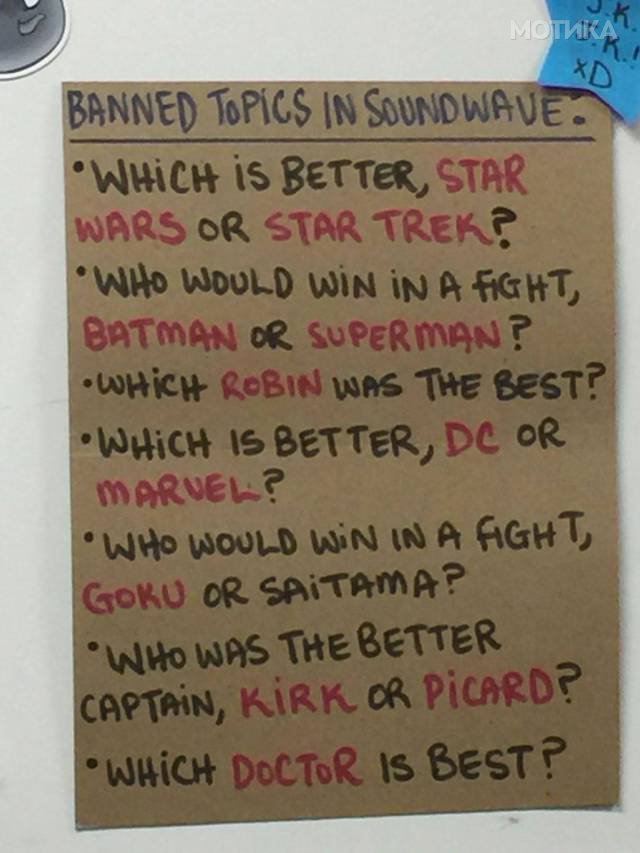 МОТИКА
J.K.
J.K.!
XD
BANNED TOPICS IN SOUNDWAVE:
•WHICH IS BETTER, STAR
WARS OR STAR TREK?
•WHO WOULD WIN IN A FIGHT,
BATMAN OR SUPERMAN?
•WHICH ROBIN WAS THE BEST?
•WHICH IS BETTER, DC OR
MARVEL?
•WHO WOULD WIN IN A FIGHT,
GOKU OR SAITAMA?
•WHO WAS THE BETTER
CAPTAIN, KIRK OR PICARD?
•WHICH DOCTOR IS BEST?